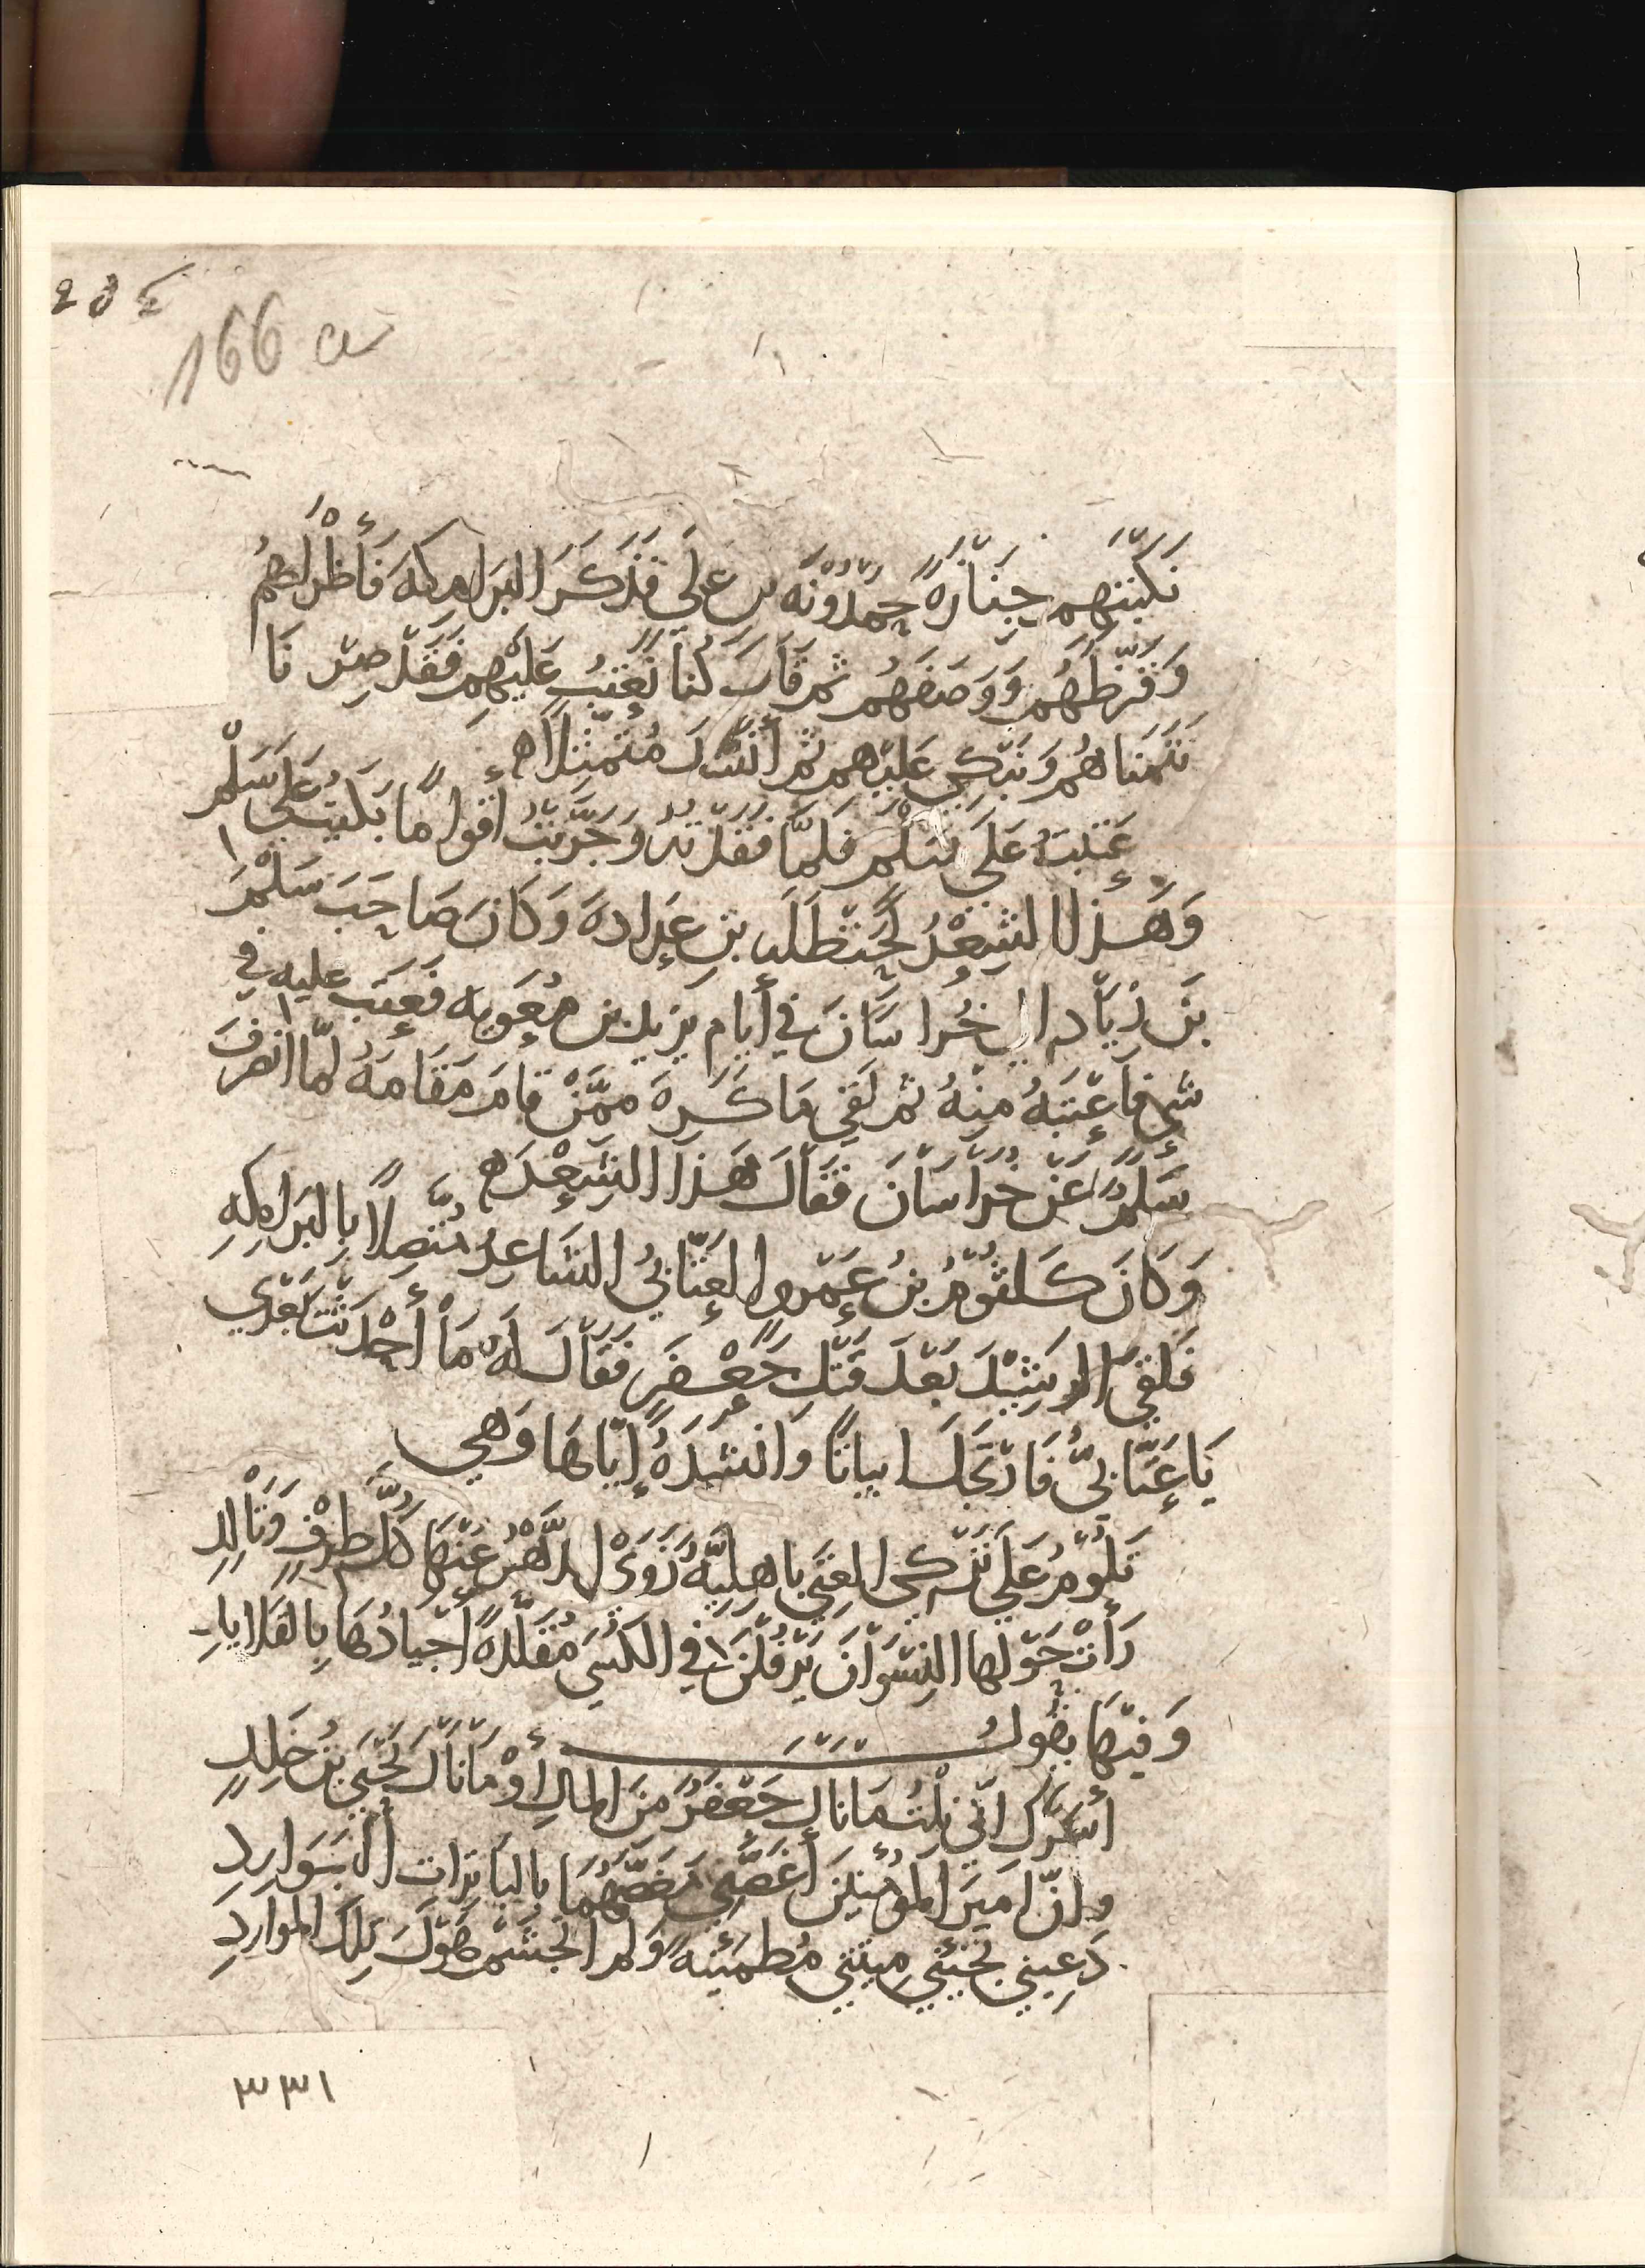 166 a
نَكْبَتِهِم جِنَازَةً حَمْدُونَة بن عَلي فَذَكَرَ البَرَامِكَه فَأَطْرَاهُمْ
وَقَرَّظَهُم وَوَصَفَهُم ثم قَالَ كُنّا نَعْتِبُ عَلَيْهِم فَقَد صِرْنَا
نَتَمَنّاهُم وَنَبْكِي عَلَيْهم ثم أنْشدَ مُتَمَثِّلًا ه
عَتَبتُ عَلَى سَلْمٍ فَلَمّا فَقَدْتُهُ وَجَرَّبْتُ أقْوامًا بَكَيتُ عَلَى سَلْمِ
وَهَذا الشِعْرُ لِحَنْظَلَه بن عَرادهَ وَكَانَ صَاحِبَ سَلْمِ
بنِ زِيَاد الي خُراسَانَ في أيام يزيد بن مُعَوِيه فعَتَبَ عليه في
شي فَأعْتَبَهُ مِنهُ ثم لَقِيَ مَا كَرِهَ مِمَّنْ قَامَ مَقَامَهُ لمّا انصَرفَ
سَلْمٌ عَنْ خُراسَانَ فقَالَ هَذا الشِعْرَ ه
وَكَانَ كَلثُوْمُ بنُ عَمْروا العَتّابيُ الشَاعِرُ مُتّصِلًا بِالبَرامِكِهِ
فَلقيَ الرشِيْدَ بَعْدَ قَتْلِ جَعْفَرٍ فقَالَ لَهُ مَا أحْدَثتَ بَعْدِي
يَا عَتّابيُّ فَارتَجَلَ ابياتًا وَانشَدَهُ إيّاهَا وَهي
تَلُوْمُ عَلَى تَرْكي الغِنَى بَاهِلِيَّةٌ زَوَىْ الدَّهْرُ عَنْهَا كُلَّ طِرْفٍ وَتَالِدِ
رَأتْ حَوْلَها النِسْوَانَ يَرْفُلْنَ في الكُسَى مُقَلَّدةً أجْيَادُهَا بِالقَلايدِ
وَفيْهَا يقُولُ
أسَرَّكِ انّي نِلْتُ مَا نالَ جَعْفَرٌ مِنَ المالِ أوْ مَا نَالَ يَحْيَى بنُ خَالِدٍ
وانّ اميَر المؤْمنِيْنَ أغَصَّني مَغَصَّهُمَا بِالبَاتِرَات البَوَارِدِ
دَعِيني تَجئْني مِيتَتي مُطمَئِنّةً وَلم اتَجَشّمْ هَوْلَ تِلكَ المواردِ
٣٣١